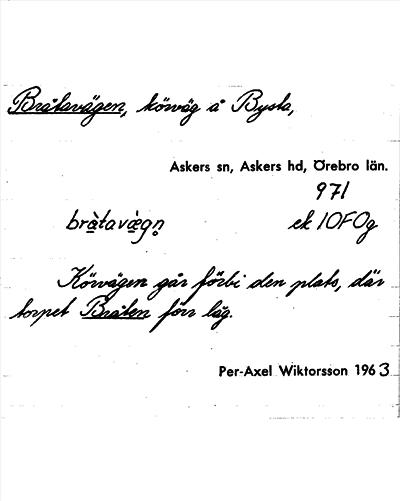 Bråtavägen, körväg å Bysta,
Askers sn, Askers hd, Örebro län.
971
bràtavæ̀gn̥ ek 10F0g
Körvägen går förbi den plats, där
torpet Bråten förr låg.
Per-Axel Wiktorsson 1963